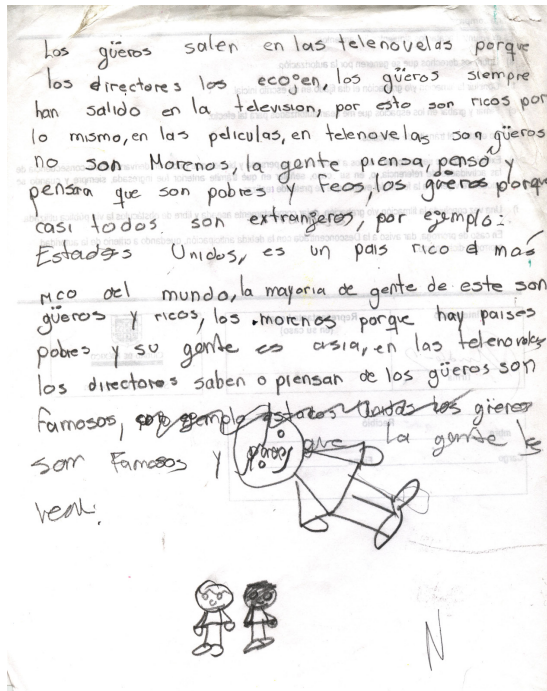 Los güeros salen en las telenovelas porque
los directores los ecojen, los güeros siempre
han salido en la television, por esto son ricos por
lo mismo, en las peliculas, en telenovelas son güeros
no son Morenos, la gente piensa, pensó y
pensara que son pobres y feos, los güeros porque
casi todos son extranjeros, por ejemplo:
Estados Unidos, es un pais rico el mas
rico del mundo, la mayoria de gente de este son
güeros y ricos, los morenos porque hay paises
pobres y su gente es asia, en las telenovelas
los directores saben o piensan de los güeros son
famosos, por ejemplo estados unidos los güeros
son famosos y porque la gente les
vean.
N